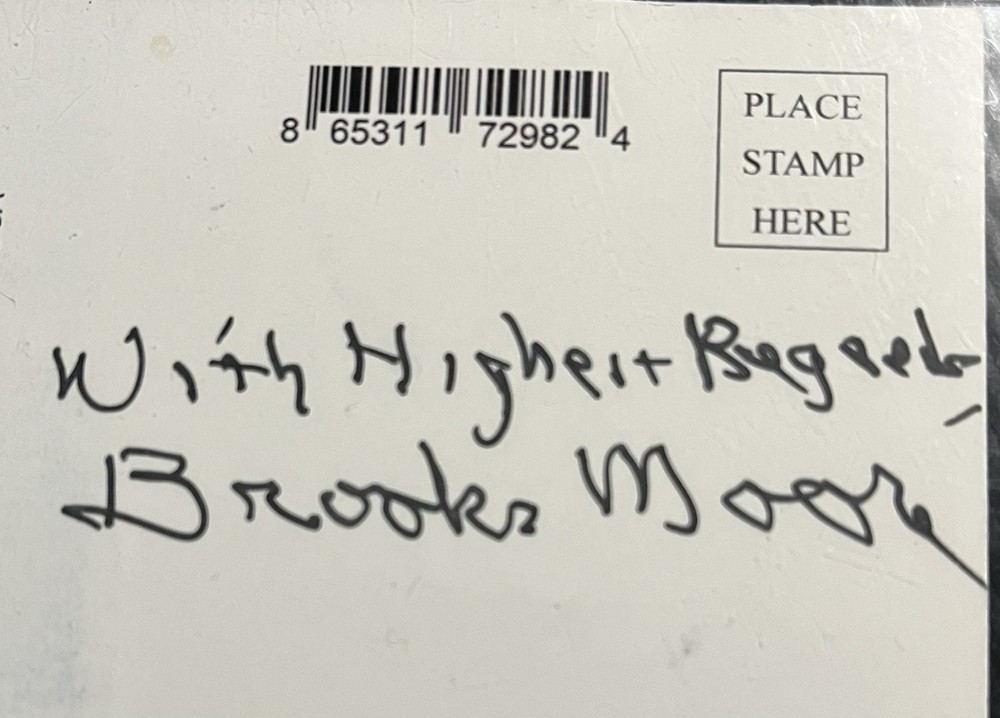 8 65311 72982 4
PLACE
STAMP
HERE
With Highest Regards
Brooks Moore